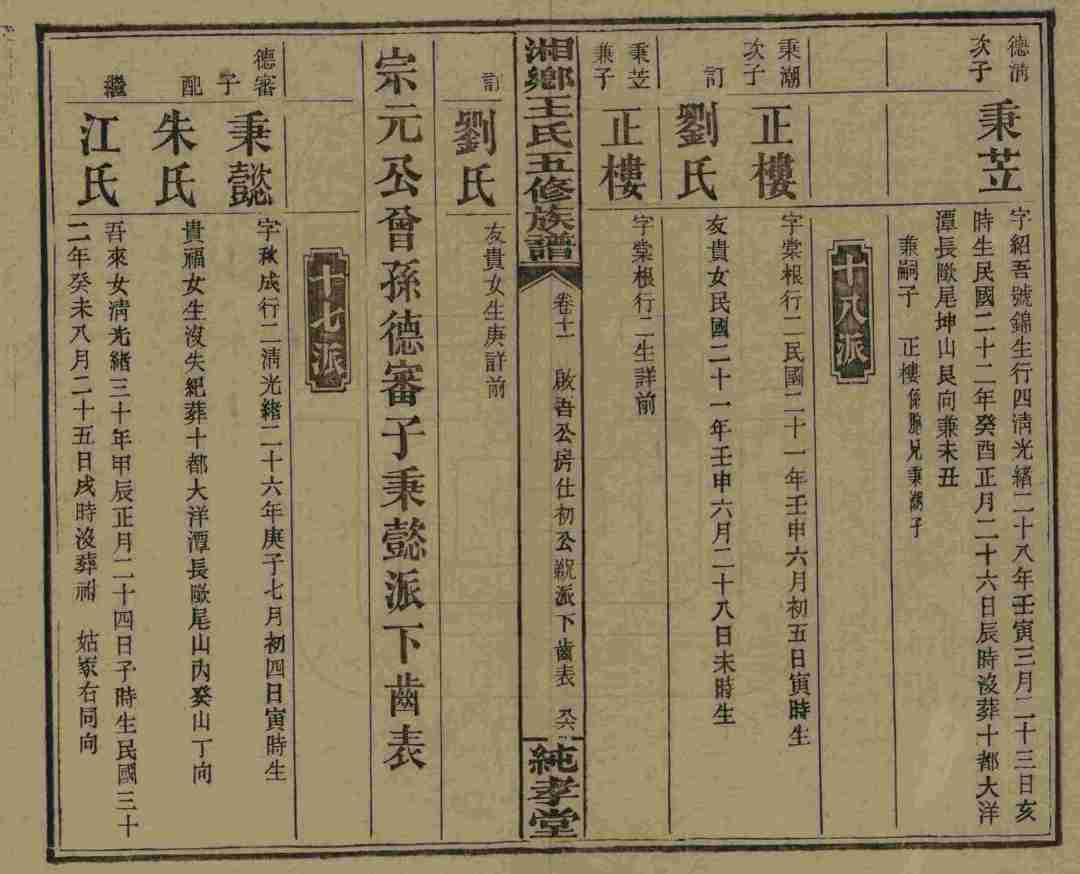 德淸
次子
秉苙
字紹吾號錦生行四淸光緒二十八年壬寅三月二十三日亥
時生民國二十二年癸酉正月二十六日辰時沒葬十都大洋
潭長歐尾坤山艮向兼未丑
兼嗣子 正樓係胞兄秉湖子
十八派
秉湖
次子
正樓
字棠根行二民國二十一年壬申六月初五日寅時生
訂
劉氏
友貴女民國二十一年壬申六月二十八日未時生
秉苙
兼子
正樓
字棠根行二生詳前
湘鄉王氏五修族譜
卷十一 啟吾公房仕初公派下齒表
純孝堂
訂
劉氏
友貴女生庚詳前
宗元公曾孫德審子秉懿派下齒表
十七派
德審
子
秉懿
字秋成行二淸光緒二十六年庚子七月初四日寅時生
配
朱氏
貴福女生沒失紀葬十都大洋潭長歐尾山內癸山丁向
繼
江氏
吾來女淸光緒三十年甲辰正月二十四日子時生民國三十
二年癸未八月二十五日戌時沒葬祔 姑冢右同向